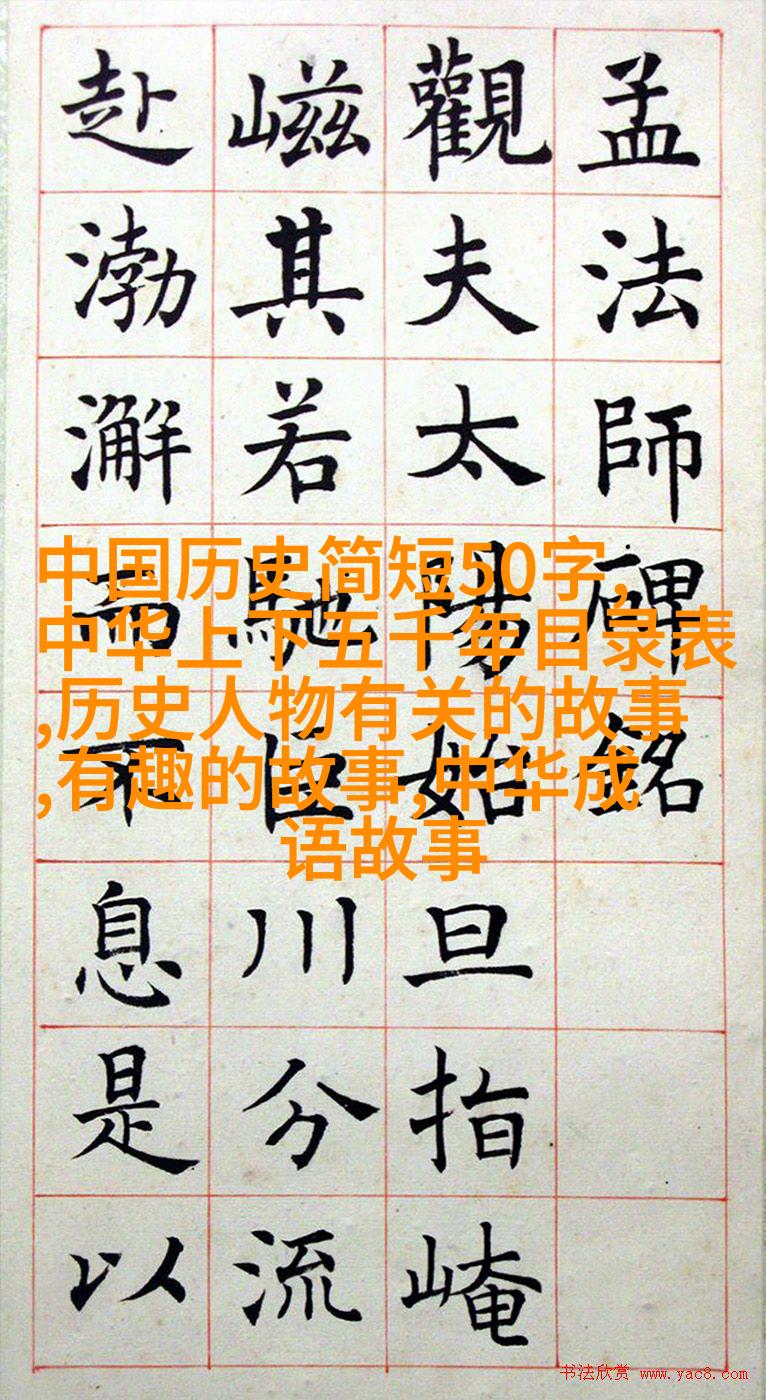 孟法師碑銘
觀夫太陽始旦指崦
嵫其若馳巨川分流
赴渤澥而不息是以
中国历史简短50字,
中华上下五千年目录表
,历史人物有关的故事
,有趣的故事,中华成
语故事
书法欣赏 www.yac8.com